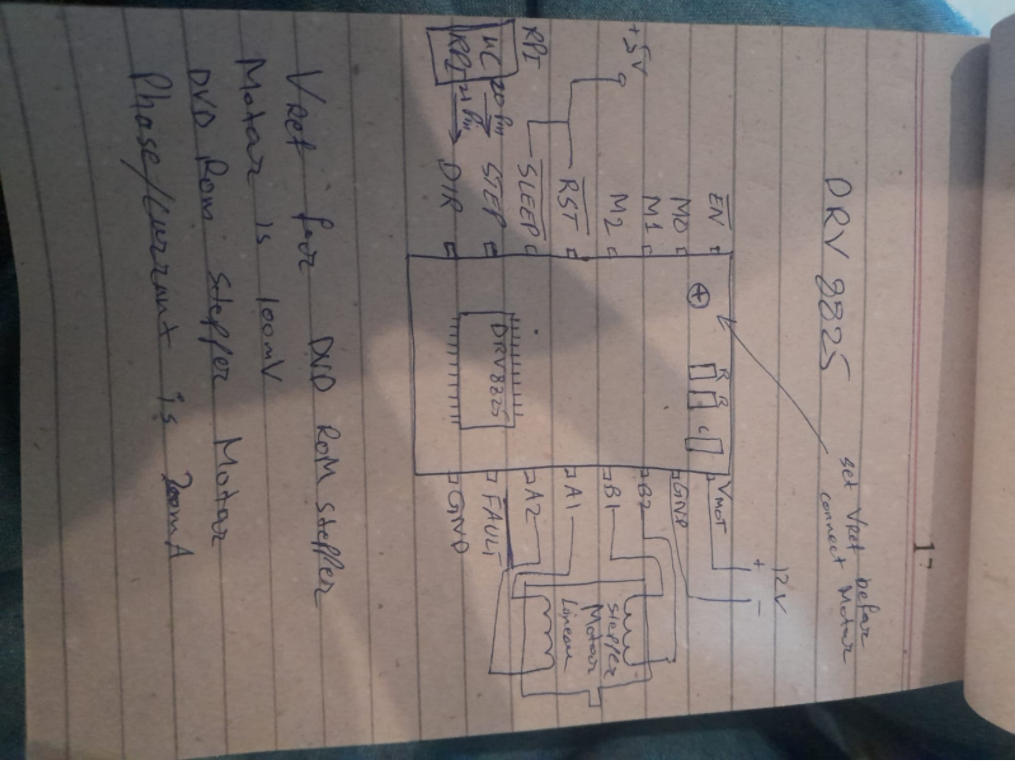 17
DRV 8825
set Vref befor
connect Motor
12V
+ -
EN
M0
M1
M2
RST
SLEEP
STEP
DIR
+5V
RPI
UC 20 Pin
RPI 21 Pin
R R C
DRV8825
VMOT
GND
B2
B1
A1
A2
FAULT
GND
Stepper
Motor
Linear
Vref for DVD ROM stepper
Motor is 100mV
DVD Rom stepper Motor
Phase/Currunt is 200mA